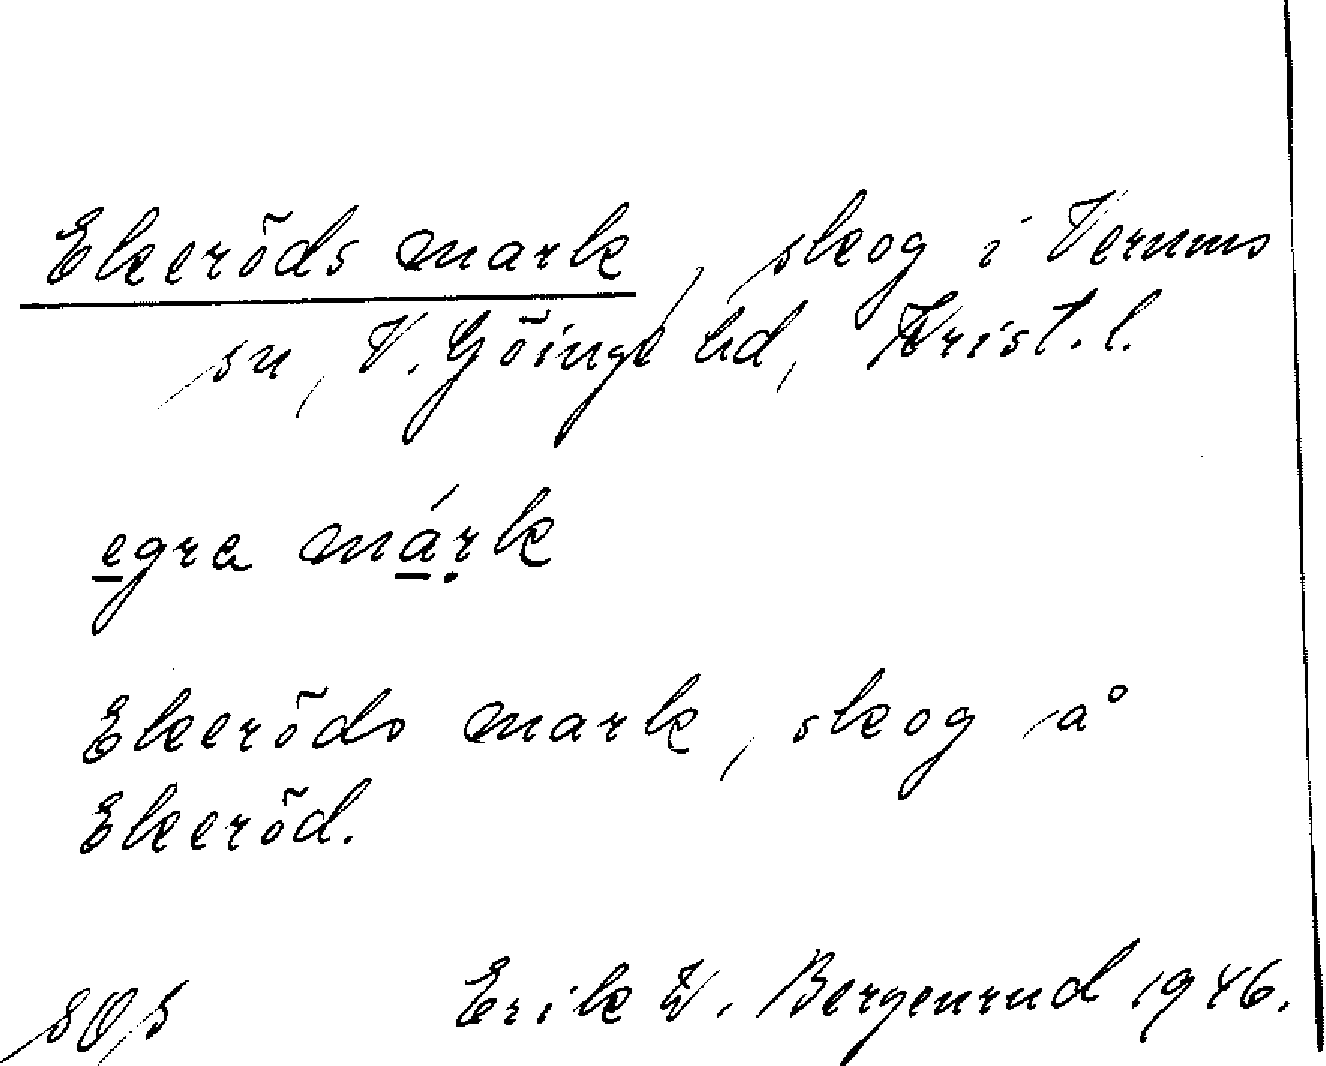 Ekeröds mark, skog i Verums
sn, V. Göinge hd, Krist. l.
egra márk
Ekeröds mark, skog på
Ekeröd.
Erik W. Bergenrud 1946.